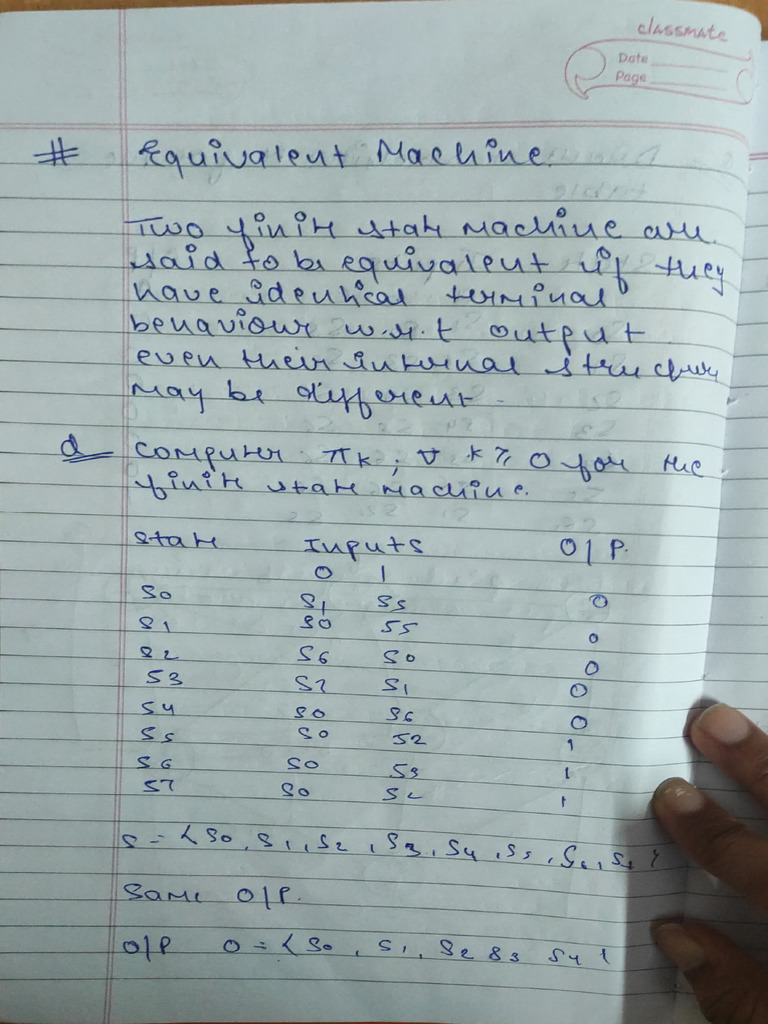 classmate
Date
Page
# Equivalent Machine.
Two finite state machine are
said to be equivalent if they
have identical terminal
behaviour w.r.t output
even their internal structure
may be different.
Q Computer πk ; ∀ k ≥ 0 for the
finite state machine.
State Inputs O/P.
0 1
S0 S1 S5 0
S1 S0 S5 0
S2 S6 S0 0
S3 S7 S1 0
S4 S0 S6 0
S5 S0 S2 1
S6 S0 S3 1
S7 S0 S2 1
S = { S0, S1, S2, S3, S4, S5, S6, S7 }
Same O/P.
O/P 0 = { S0, S1, S2 S3 S4 }